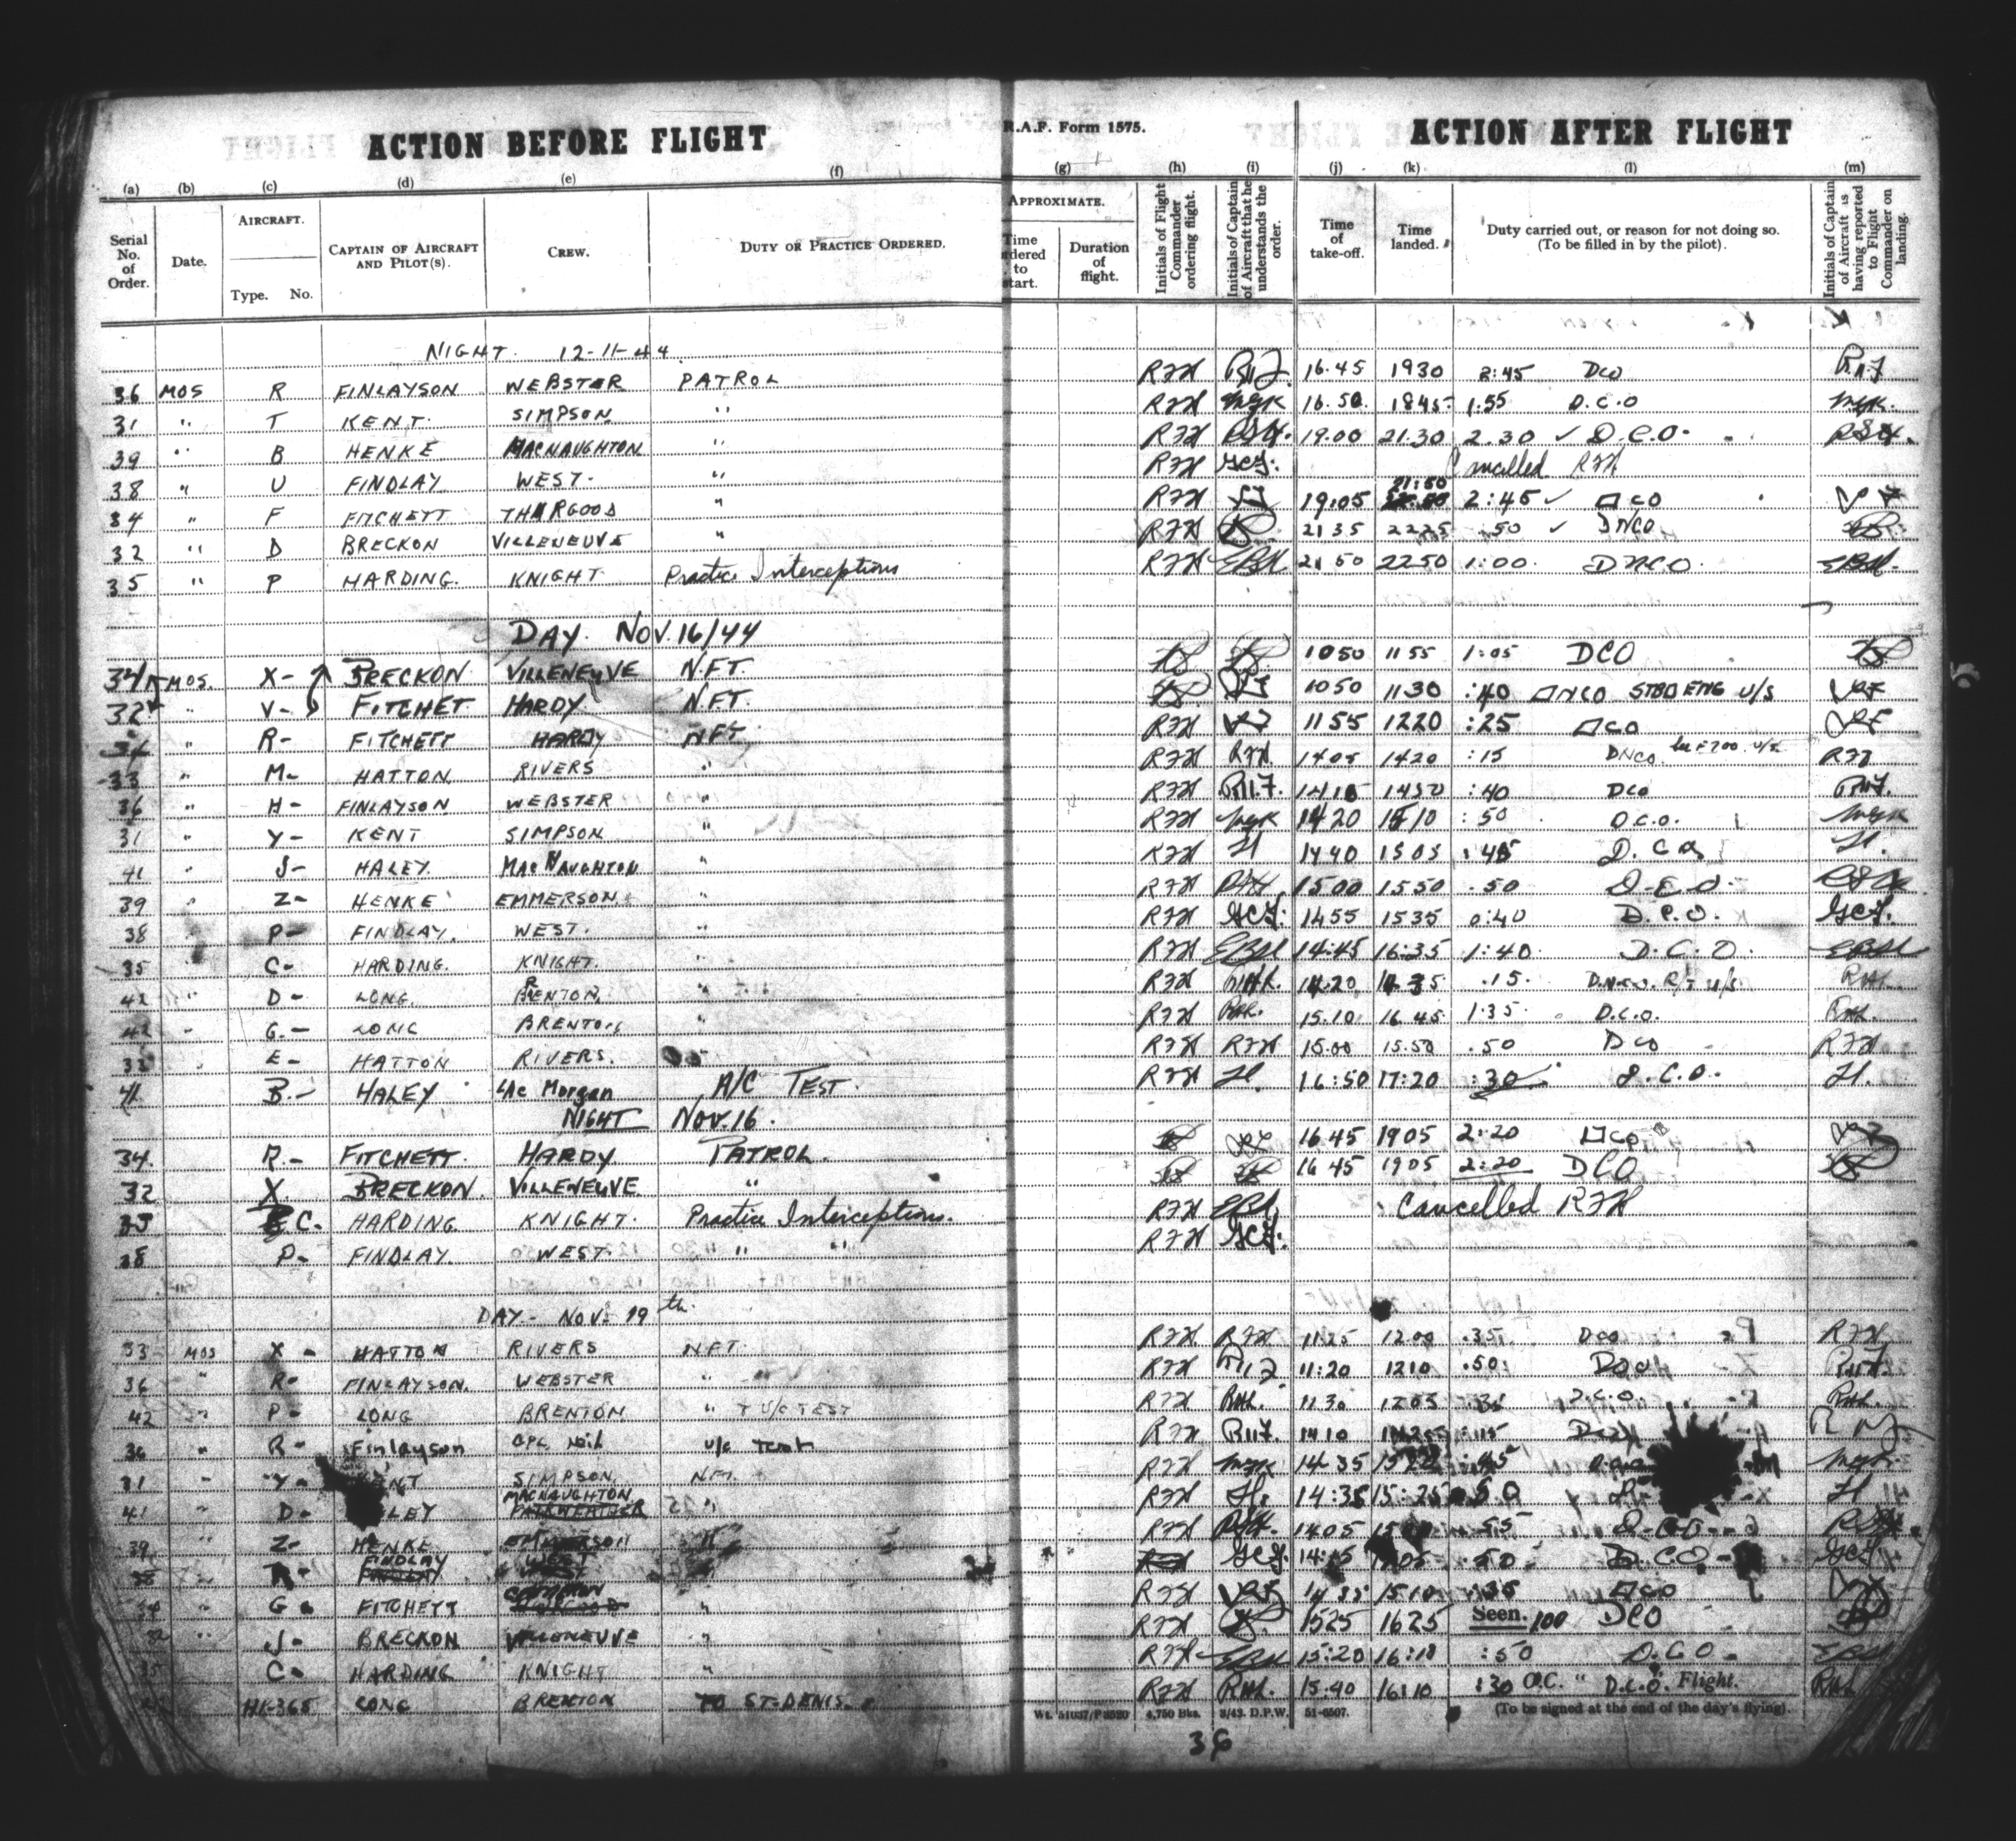 ACTION BEFORE FLIGHT R.A.F. Form 1575. ACTION AFTER FLIGHT
(a) (b) (c) (d) (e) (f) (g) (h) (i) (j) (k) (l) (m)
Serial No. of Order. Date. AIRCRAFT. Type. No. CAPTAIN OF AIRCRAFT AND PILOT(S). CREW. DUTY OR PRACTICE ORDERED. APPROXIMATE. Time ordered to start. Duration of flight. Initials of Flight Commander ordering flight. Initials of Captain of Aircraft that he understands the order. Time of take-off. Time landed. Duty carried out, or reason for not doing so. (To be filled in by the pilot). Initials of Captain of Aircraft as having reported to Flight Commander on landing.
NIGHT. 12-11-44.
36 MOS R FINLAYSON WEBSTER PATROL RFH 16.45 1930 2:45 DCO
31 " T KENT. SIMPSON " RFH WGK 16.50 1845 1.55 D.C.O WGK.
39 " B HENKE MACNAUGHTON " RFH 19.00 21.30 2.30 ✓ D.C.O.
38 " U FINDLAY WEST. " RFH GCF. Cancelled RFH
34 " F FITCHETT THURGOOD " RFH 19:05 21:50 2:45 ✓ DCO
32 " D BRECKON VILLENEUVE " RFH 2135 2225 50 ✓ DNCO
35 " P HARDING. KNIGHT Practice Interceptions RFH EBH 21 50 2250 1:00 DNCO. EBH.
DAY. NOV. 16/44
34 MOS. X- BRECKON VILLENEUVE N.F.T. 1050 1155 1:05 DCO
32 " V- FITCHET HARDY N.F.T. 1050 1130 :40 DNCO STBD ENG U/S
" R- FITCHETT HARDY NFT RFH 1155 1220 :25 DCO
33 " M- HATTON RIVERS " RFH RFH 1405 1420 :15 DNCO U/S
36 " H- FINLAYSON WEBSTER " RFH 1450 :40 DCO
31 " Y- KENT SIMPSON " RFH WGK 1420 1510 :50 D.C.O. WGK
41 " J- HALEY. MACNAUGHTON " RFH H 1440 1505 :45 D.C.O. H.
39 " Z- HENKE EMMERSON " RFH 1500 1550 .50 D.C.O.
38 " P- FINDLAY. WEST. " RFH GCF. 1455 1535 0:40 D.C.O. GCF.
35 " C- HARDING. KNIGHT. " RFH EBH 14:45 16:35 1:40 D.C.O. EBH
42 " D- LONG. BRENTON. " RFH RHL. 14.20 14.35 .15. D.N.C.O. R/T U/S RHL.
42 " G- LONG BRENTON " RFH RHL. 15.10 16.45 1.35 D.C.O. RHL.
33 " E- HATTON RIVERS. RFH RFH 15.00 15.50 .50 DCO RFH
41 B- HALEY LAC Morgan A/C TEST. RFH H. 16:50 17:20 :30 D.C.O. H.
NIGHT NOV. 16.
34. R- FITCHETT. HARDY PATROL. 1645 1905 2:20 DCO
32 X BRECKON. VILLENEUVE " 1645 1905 2:20 DCO
35 C- HARDING KNIGHT. Practice Interceptions. RFH EBH Cancelled RFH
38 P- FINDLAY. WEST. " " RFH GCF.
DAY- NOV. 19th.
33 MOS X- HATTON RIVERS NFT. RFH RFH 11:25 1200 .35 DCO RFH
36 " R- FINLAYSON. WEBSTER " RFH 11:20 1210 .50 DCO
42 " P- LONG BRENTON " + U/C TEST RFH RHL. 1130 1205 D.C.O. RHL.
36 " R- Finlayson CPL U/C Test RFH 1410
31 " Y- KENT SIMPSON. NFT. RFH WGK 14 35 45
41 " D- MACNAUGHTON " RFH H. 14:35 15:25 50 H
39 " Z- HENKE EMMERSON " RFH 1405 55 D.C.O.
" FINDLAY WEST GCF. 1505 50 D.C.O. GCF.
" G FITCHETT " RFH 1510 :35 DCO
" J- BRECKON VILLENEUVE " RFH 1525 1625 Seen. 100 DCO
35 " C- HARDING KNIGHT " RFH EBH 15:20 16:10 :50 D.C.O. EBH
HK-365 LONG BRENTON TO ST-DENIS. RFH RHL. 15.40 16:10 :30 O.C. " D.C.O. " Flight. RHL
Wt. 51037/P 3520 4,750 Bks. 8/43. D.P.W. 51-6507. (To be signed at the end of the day's flying).
36